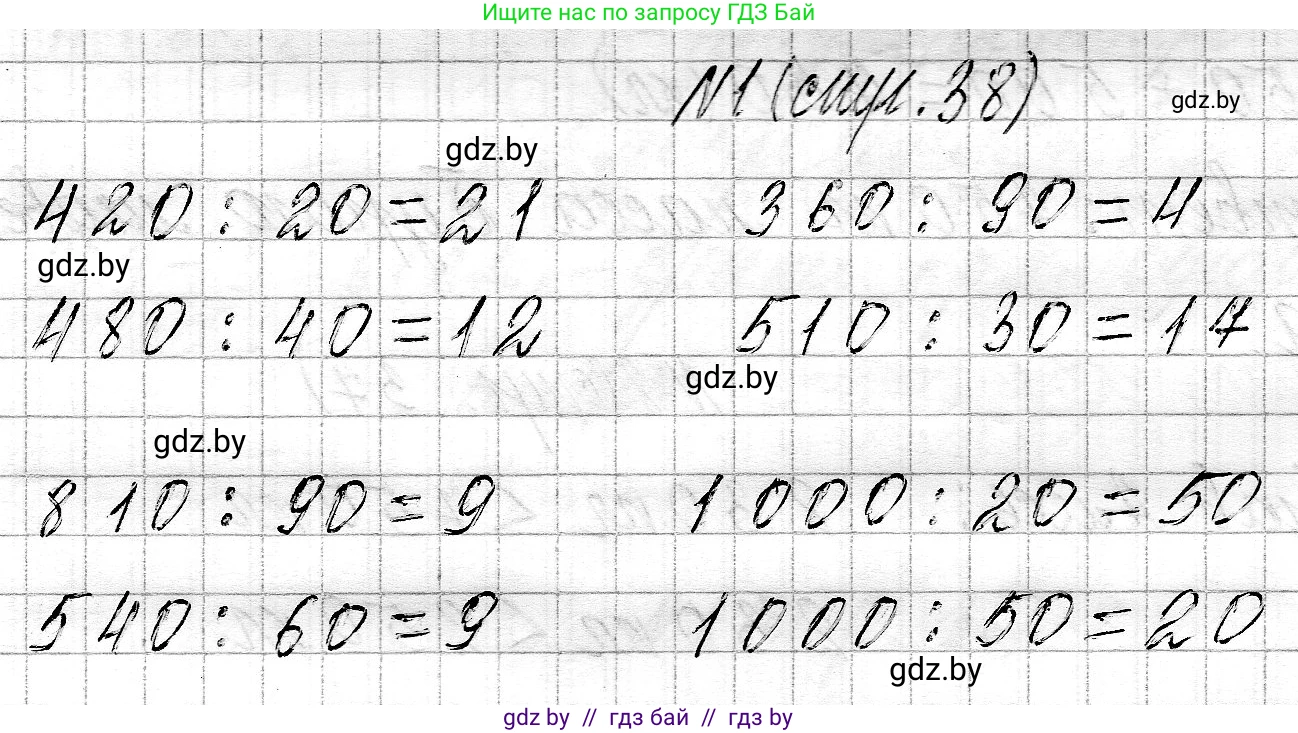 Ищите нас по запросу ГДЗ Бай
№1 (стр. 38) gdz.by
gdz.by
420 : 20 = 21 360 : 90 = 4
gdz.by
480 : 40 = 12 510 : 30 = 17
gdz.by
gdz.by
810 : 90 = 9 1000 : 20 = 50
540 : 60 = 9 1000 : 50 = 20
gdz.by
gdz by // гдз бай // гдз by